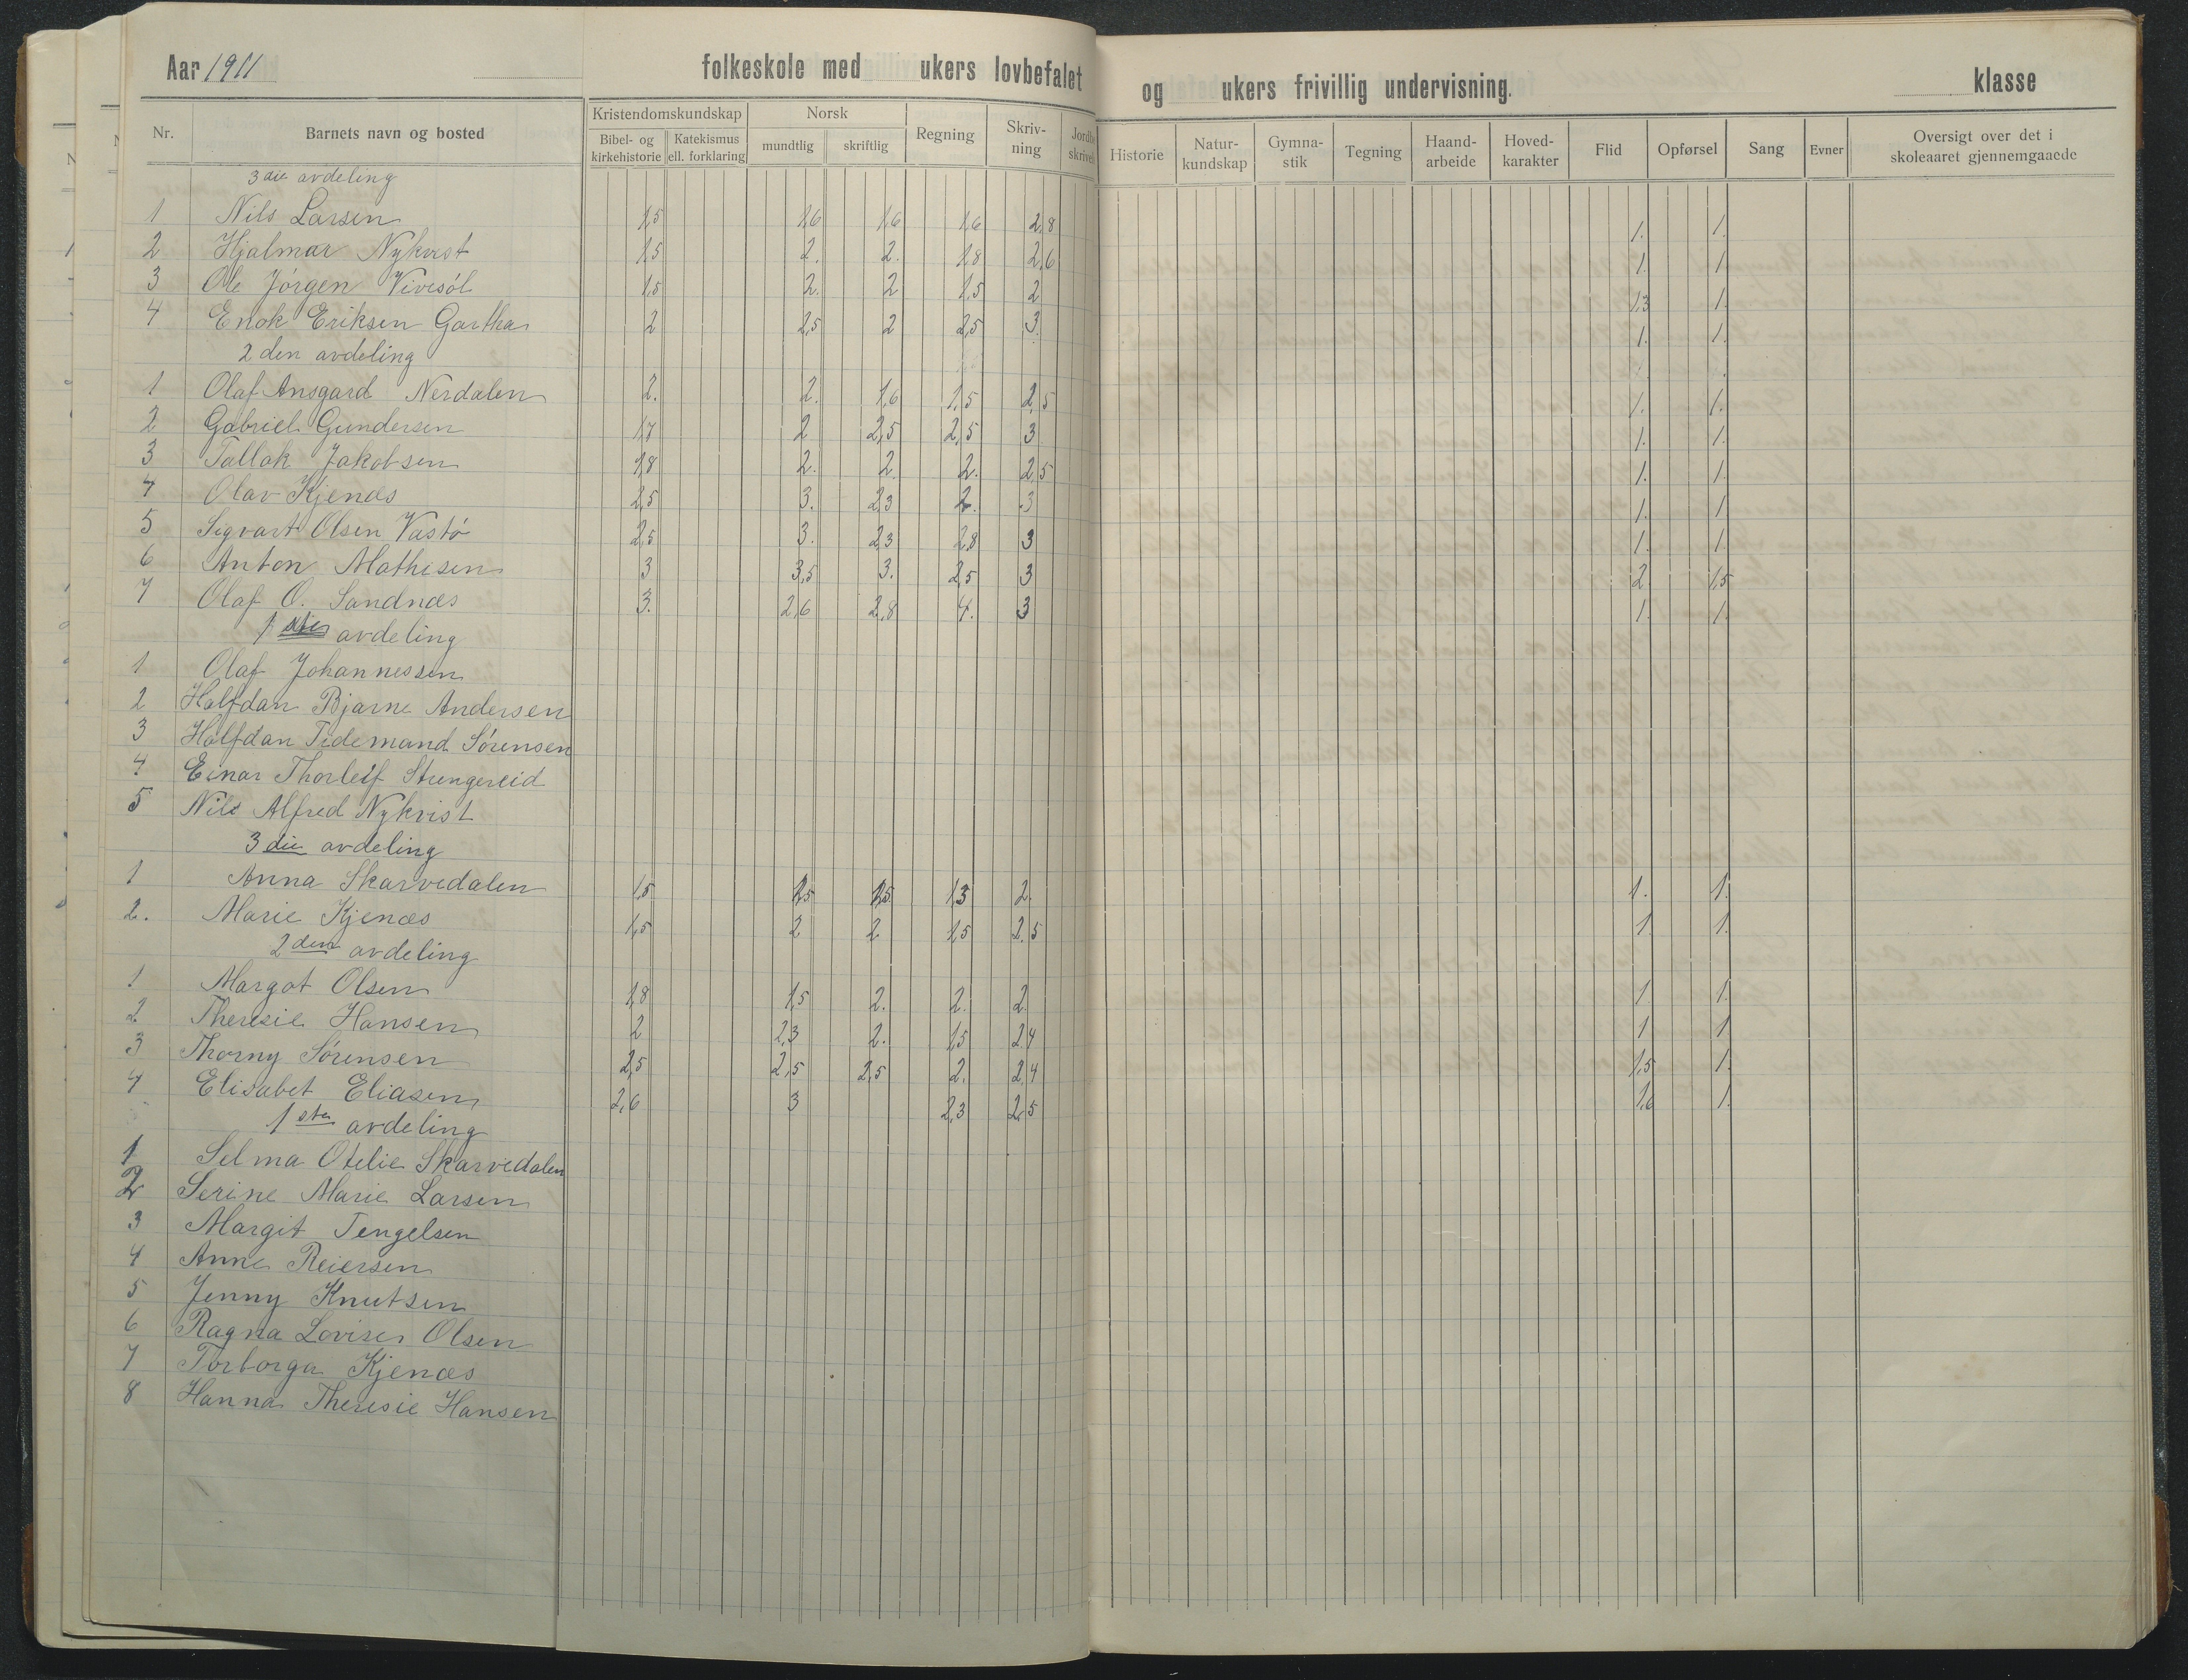 Aar 1911 folkeskole med ukers lovbefalet og ukers frivillig undervisning. klasse
Nr. Barnets navn og bosted Kristendomskundskap Norsk Regning Skriv-ning Historie Natur-kundskap Gymna-stik Tegning Haand-arbeide Hoved-karakter Flid Opførsel Sang Evner Oversigt over det i skoleaaret gjennemgaaede
Bibel- og kirkehistorie Katekismus ell. forklaring mundtlig skriftlig
3die avdeling
1 Nils Larsen 1,5 1,6 1,6 1,6 2,8 1. 1.
2 Hjalmar Nykvist 1,5 2. 2. 1,8 2,6 1. 1.
3 Ole Jörgen Vivesöl 1,5 2. 2 1,5 2 1,3 1.
4 Enok Eriksen Gartha 2 2,5 2 2,5 3. 1. 1.
2 den avdeling
1 Olaf Ansgard Nerdalen 2. 2. 1,6 1,5 2,5 1. 1.
2 Gabriel Gundersen 1,7 2 2,5 2,5 3 1. 1.
3 Tallak Jakobsen 1,8 2. 2. 2. 2,5 1. 1.
4 Olav Kjenæs 2,5 3. 2,3 2. 3 1. 1.
5 Sigvart Olsen Vastö 2,5 3. 2,3 2,8 3 1. 1.
6 Anton Mathisen 3 3,5 3. 2,5 3 2. 1,5
7 Olaf O. Sandnæs 3. 2,6 2,8 4. 3 1. 1.
1 ste avdeling
1 Olaf Johannessen
2 Halfdan Bjarne Andersen
3 Halfdan Tidemand Sörensen
4 Einar Thorleif Strengereid
5 Nils Alfred Nykvist
3 die avdeling
1 Anna Skarvedalen 1,5 1,5 1,5 1,3 2. 1. 1.
2. Marie Kjenæs 1,5 2 2 1,5 2,5 1 1.
2 den avdeling
1 Margot Olsen 1,8 1,5 2. 2. 2 1. 1.
2 Theresie Hansen 2 2,3 2. 1,5 2,4 1 1
3 Thorny Sörensen 2,5 2,5 2,5 2. 2,4 1,5 1.
4 Elisabet Eliasen 2,6 3 2,3 2,5 1,6 1.
1 ste avdeling
1 Selma Otelie Skarvedalen
2 Serine Marie Larsen
3 Margit Tengelsen
4 Anne Reiersen
5 Jenny Knutsen
6 Ragna Lovise Olsen
7 Torborga Kjenæs
8 Hanna Theresie Hansen